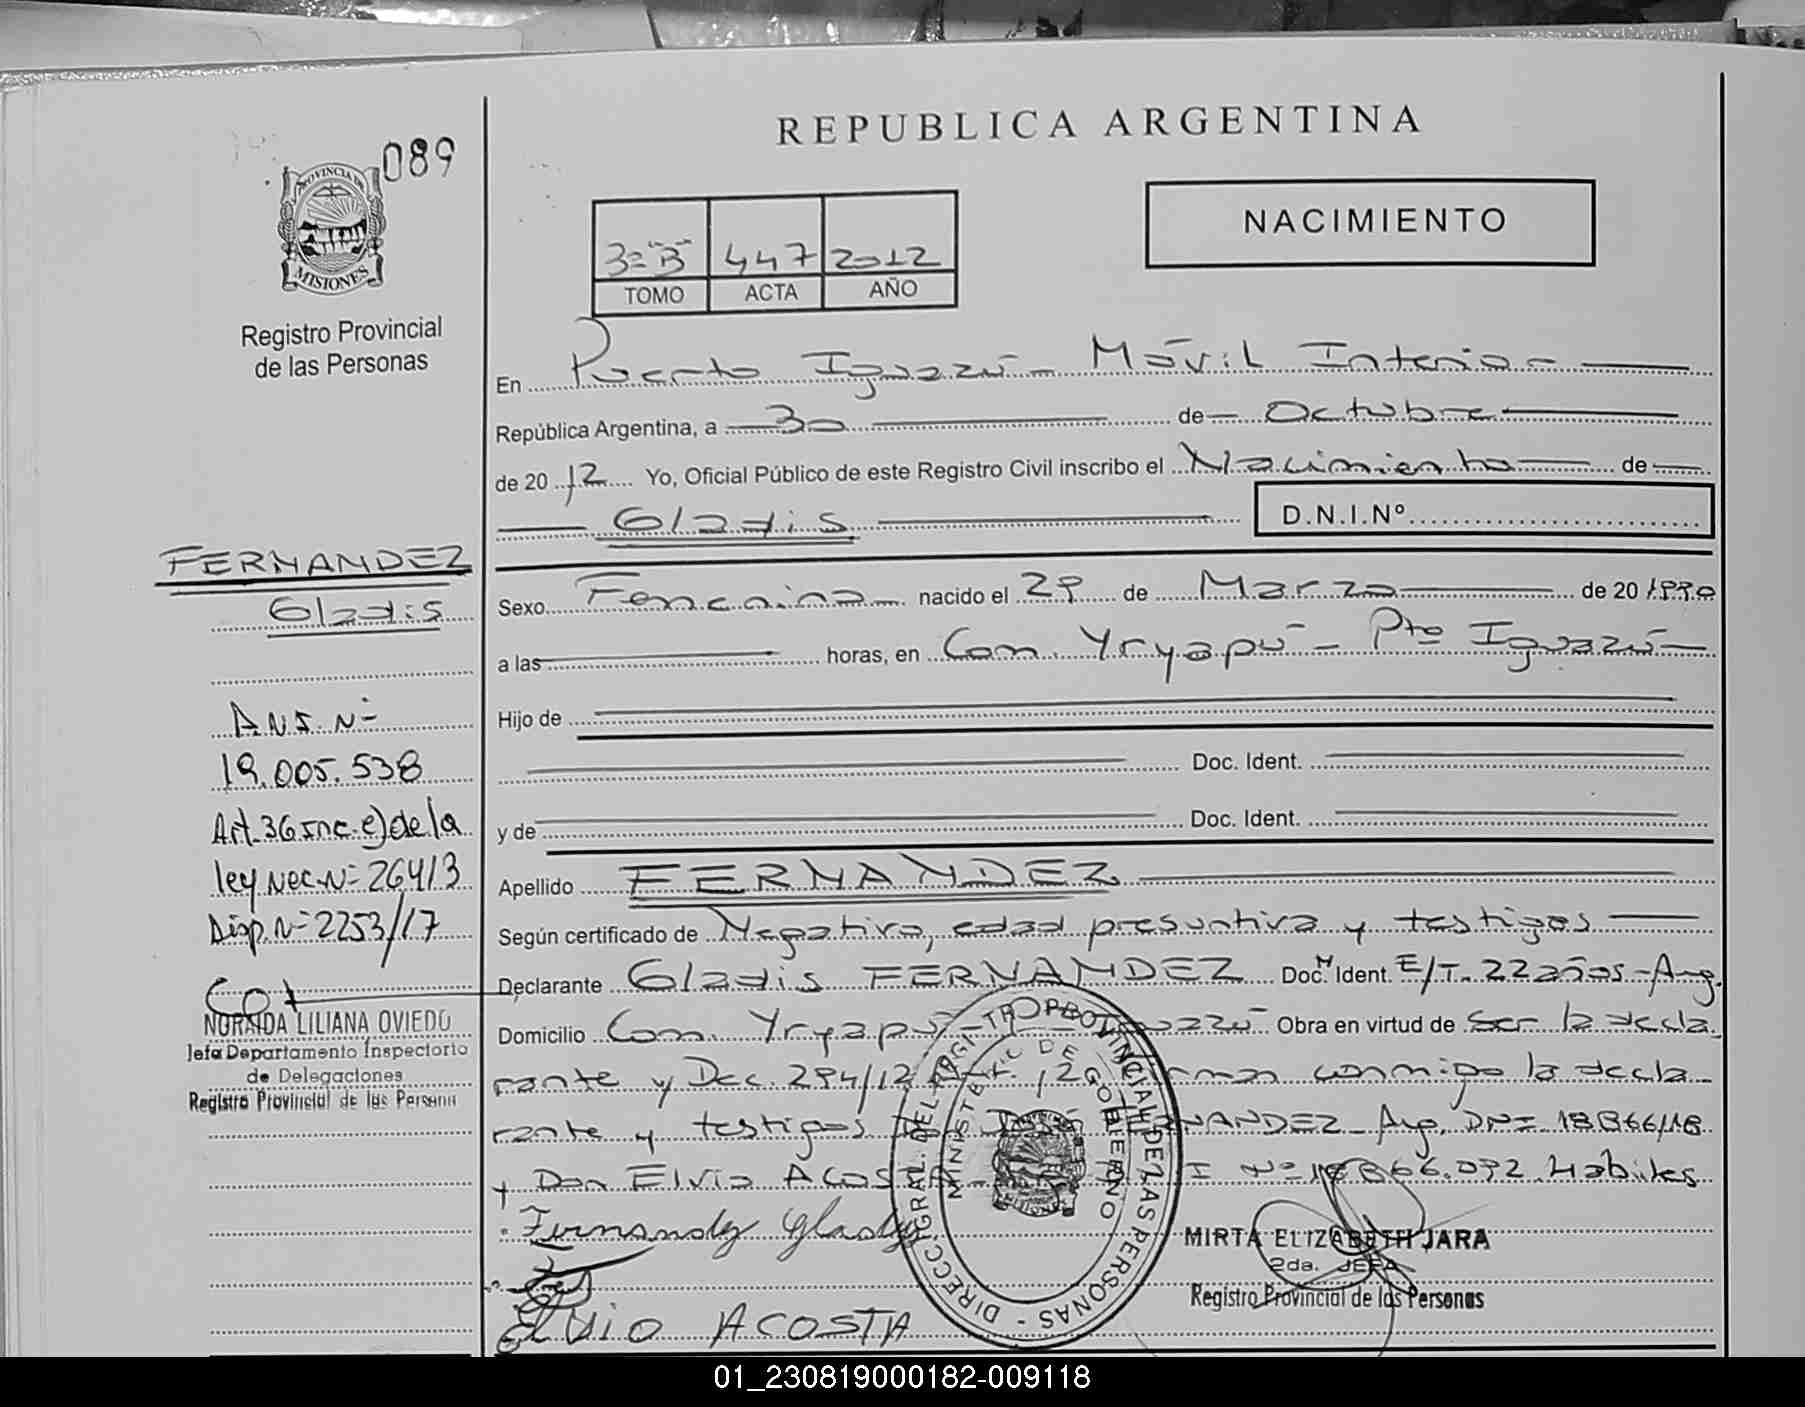 REPUBLICA ARGENTINA
089
PROVINCIA DE
MISIONES
Registro Provincial
de las Personas
3º "B" 447 2012
TOMO ACTA AÑO
NACIMIENTO
En Puerto Iguazú - Móvil Interior
República Argentina, a 30 de Octubre
de 2012 Yo, Oficial Público de este Registro Civil inscribo el Nacimiento de
Gladis
D.N.I.Nº
Sexo Femenino nacido el 29 de Marzo de 20 1990
a las horas, en Com. Yryapú - Pto Iguazú
Hijo de
Doc. Ident.
y de Doc. Ident.
Apellido FERNANDEZ
Según certificado de Negativo, edad presuntiva y testigos
Declarante Gladis FERNANDEZ Doc. Ident. E/T. 22 años - Arg.
Domicilio Com. Yryapú - Iguazú Obra en virtud de Ser la decla
rante y Dec. 294/12 conmigo la decla
rante y testigos FERNANDEZ - Arg. DNI
y Don Elvio ACOSTA Nº 18866.092. Habiles
Fernandez Glady
Elvio ACOSTA
MIRTA ELIZABETH JARA
2da. JEFA
Registro Provincial de las Personas
DIRECC. GRAL. DEL REGISTRO PROVINCIAL DE LAS PERSONAS
MINISTERIO DE GOBIERNO
FERNANDEZ
Gladis
D.N.I. Nº
19.005.538
Art. 36 inc. e) de la
ley Nac. Nº 26413
Disp. Nº 2253/17
NORAIDA LILIANA OVIEDO
Jefa Departamento Inspectorio
de Delegaciones
Registro Provincial de las Personas
01_230819000182-009118